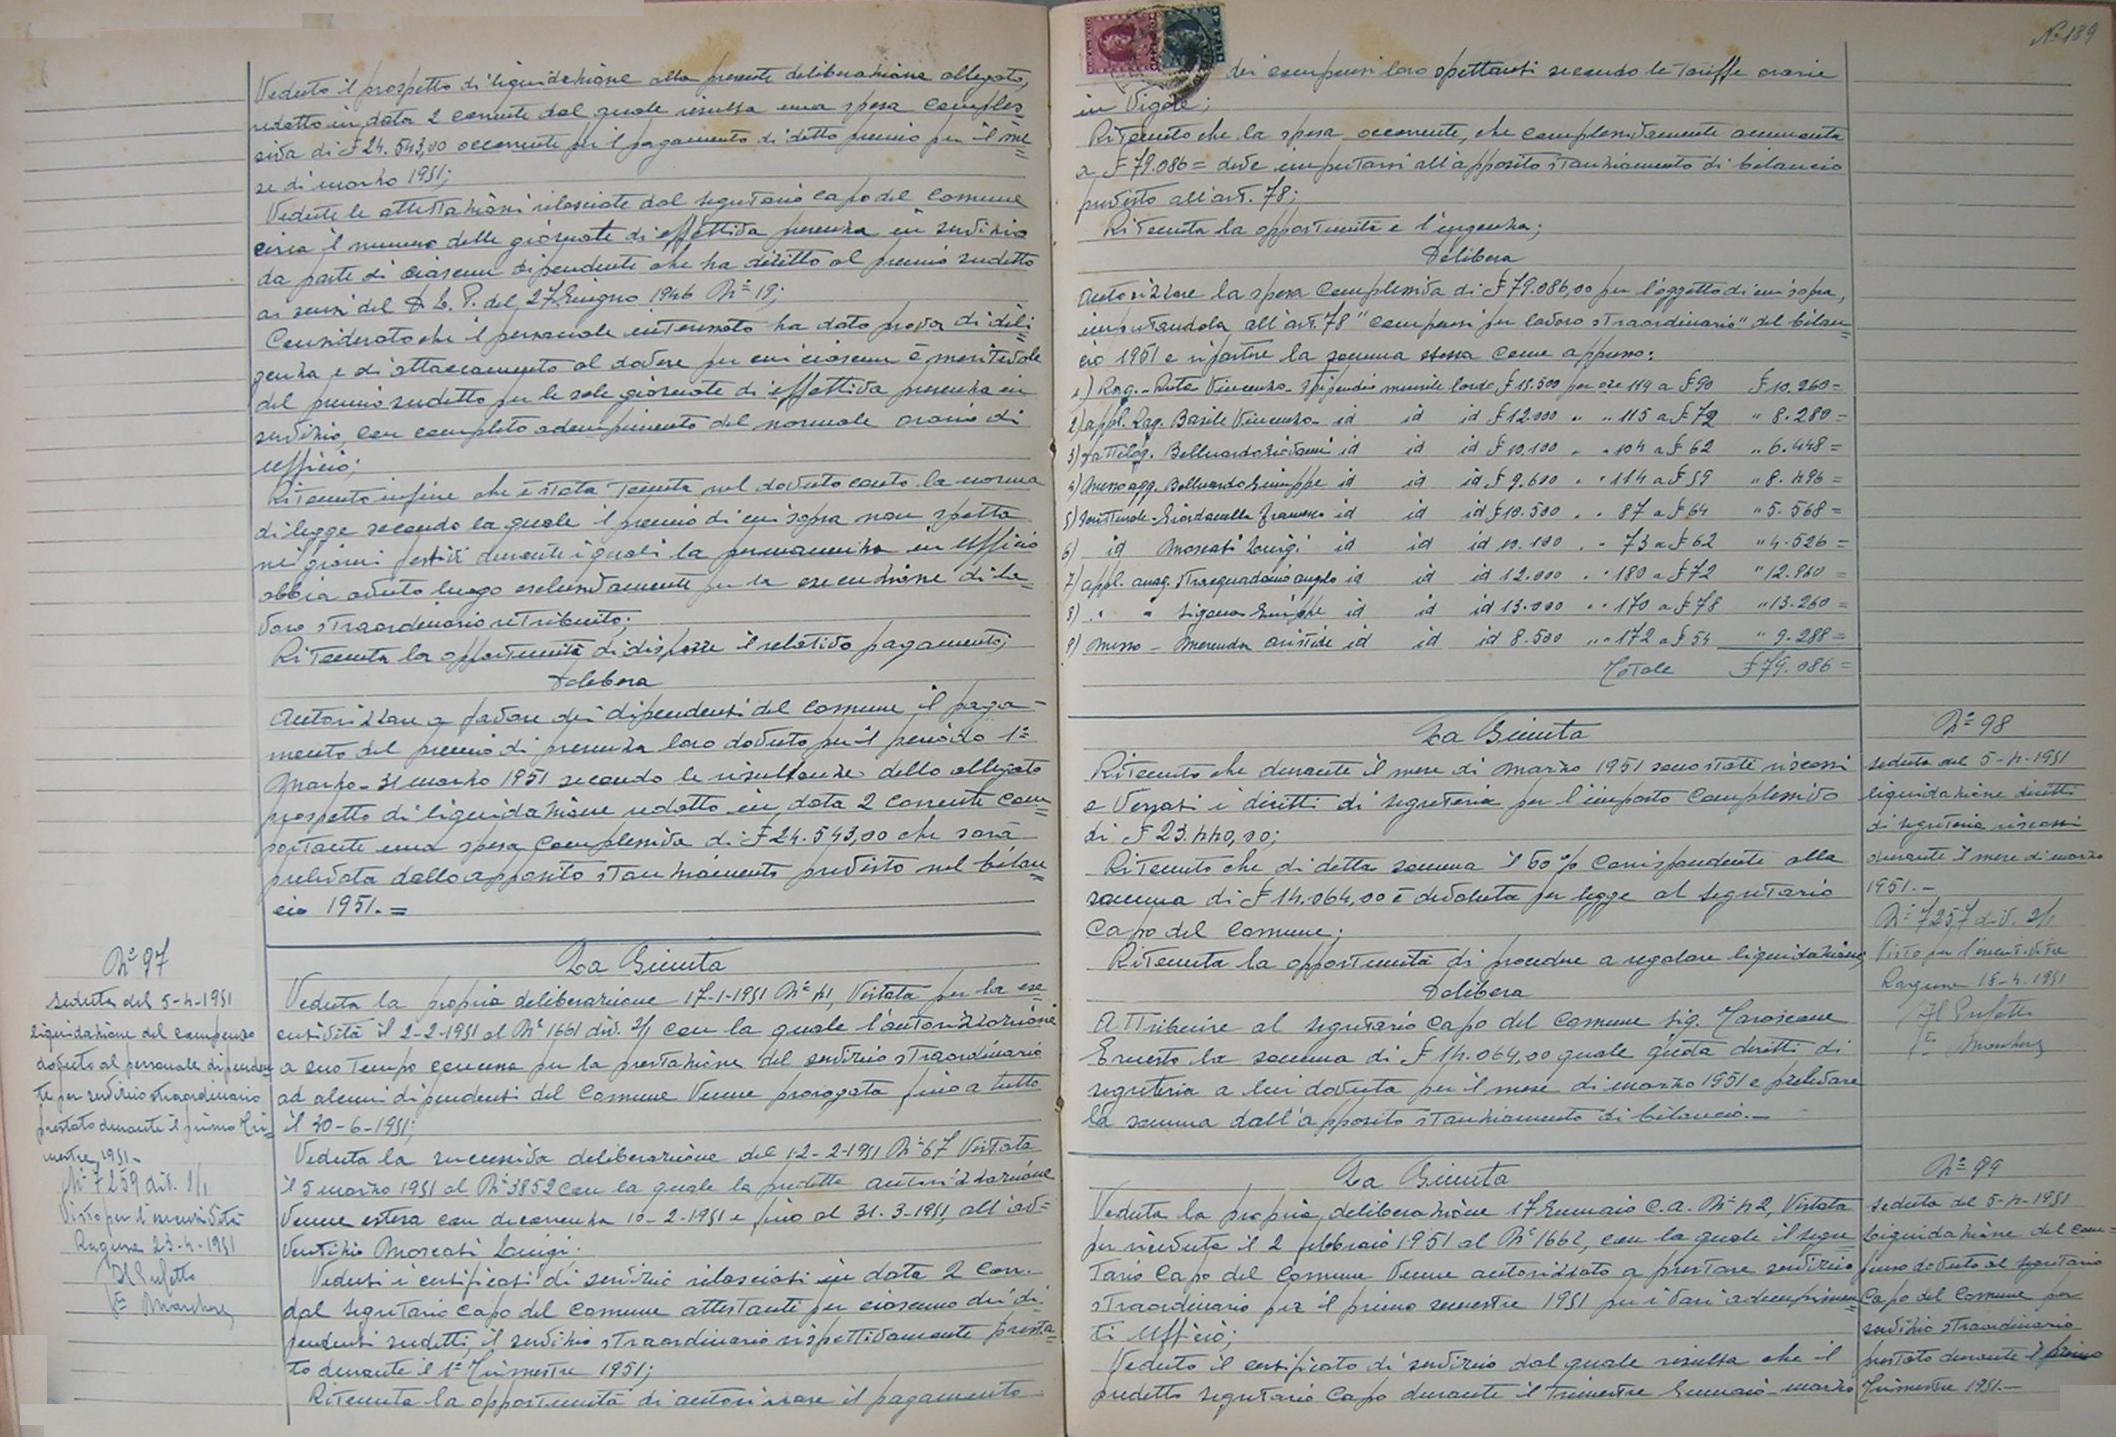 Veduto il prospetto di liquidazione alla presente deliberazione allegato,
redatto in data 2 corrente dal quale risulta una spesa comples=
siva di £ 24.543,00 occorrente per il pagamento di detto premio per il me=
se di marzo 1951;
Vedute le attestazioni rilasciate dal segretario capo del Comune
circa il numero delle giornate di effettiva presenza in servizio
da parte di ciascun dipendente che ha diritto al premio sudetto
ai sensi del D. L. P. del 27 Giugno 1946 N° 19;
Considerato che il personale interessato ha dato prova di dili=
genza e di attaccamento al dovere per cui ciascun è meritevole
del premio sudetto per le sole giornate di effettiva presenza in
servizio, con completo adempimento del normale orario di
ufficio;
Ritenuto infine che è stata tenuta nel dovuto conto la norma
di legge secondo la quale il premio di cui sopra non spetta
nei giorni festivi durante i quali la permanenza in ufficio
abbia avuto luogo esclusivamente per la esecuzione di la=
voro straordinario retribuito;
Ritenuta la opportunità di disporre il relativo pagamento;
Delibera
Autorizzare a favore dei dipendenti del Comune il paga-
mento del premio di presenza loro dovuto per il periodo 1°
Marzo - 31 marzo 1951 secondo le risultanze dello allegato
prospetto di liquidazione redatto in data 2 corrente com=
portante una spesa complessiva di £ 24.543,00 che sarà
prelevata dallo apposito stanziamento previsto nel bilan=
cio 1951. =
N° 97
seduta del 5-4-1951
Liquidazione del compenso
dovuto al personale dipenden
te per servizio straordinario
prestato durante il primo Tri=
mestre, 1951 -
N° 7259 div. 2/1
Visto per l'esecutività
Ragusa 23-4-1951
Il Prefetto
La Giunta
Veduta la propria deliberazione 17-1-1951 N° 41, Vistata per la ese=
cutività il 2-2-1951 al N° 1661 div. 2/1 con la quale l'autorizzazione
a suo tempo concessa per la prestazione del servizio straordinario
ad alcuni dipendenti del Comune Venne prorogata fino a tutto
il 30-6-1951;
Veduta la successiva deliberazione del 12-2-1951 N° 67 Vistata
il 5 marzo 1951 al N° 3852 con la quale la predetta autorizzazione
Venne estesa con decorrenza 10-2-1951 e fino al 31-3-1951, all'av=
ventizio Moscati Luigi;
Veduti i certificati di servizio rilasciati in data 2 corr.
dal segretario capo del Comune attestanti per ciascuno dei di=
pendenti sudetti, il servizio straordinario rispettivamente presta=
to durante il 1° Trimestre 1951;
Ritenuta la opportunità di autorizzare il pagamento
N° 189
dei compensi loro spettanti secondo le Tariffe orarie
in Vigore;
Ritenuto che la spesa occorrente, che complessivamente ammonta
a £ 79.086 = deve imputarsi all'apposito stanziamento di bilancio
previsto all'art. 78;
Ritenuta la opportunità e l'urgenza;
Delibera
Autorizzare la spesa complessiva di £ 79.086,00 per l'oggetto di cui sopra,
imputandola all'art. 78 "compensi per lavoro straordinario" del bilan=
cio 1951 e ripartire la somma stessa come appresso:
1) Rag. Vincenzo - Stipendio mensile lordo £ 15.500 per ore 114 a £ 90 £ 10.260 =
2) appl. Rag. Basile Vincenzo - id id id £ 12.000 " " 115 a £ 72 " 8.280 =
3) Dattilog. Belluardo Giovanni id id id £ 10.100 " " 104 a £ 62 " 6.448 =
4) Messo agg. Belluardo Giuseppe id id id £ 9.600 " " 114 a £ 59 " 8.496 =
5) Francesco id id id £ 10.500 " " 87 a £ 64 " 5.568 =
6) id Moscati Luigi id id id 10.100 " " 73 a £ 62 " 4.526 =
7) appl. anag. Straquadanio Angelo id id id 12.000 " " 180 a £ 72 " 12.960 =
8) " " Giuseppe id id id 13.000 " " 170 a £ 78 " 13.260 =
9) Messo - Merenda Aristide id id id 8.500 " " 172 a £ 54 " 9.288 =
Totale £ 79.086 =
La Giunta
Ritenuto che durante il mese di Marzo 1951 sono stati riscossi
e Versati i diritti di segreteria per l'importo complessivo
di £ 23.440,00;
Ritenuto che di detta somma il 60 % corrispondente alla
somma di £ 14.064,00 è devoluta per legge al segretario
Capo del Comune;
Ritenuta la opportunità di procedere a regolare liquidazione,
Delibera
Attribuire al segretario Capo del Comune Sig. Tarascone
Ernesto la somma di £ 14.064,00 quale quota diritti di
segreteria a lui dovuta per il mese di marzo 1951 e prelevare
la somma dall'apposito stanziamento di bilancio. -
N° 98
seduta del 5-4-1951
liquidazione diritti
di segreteria riscossi
durante il mese di marzo
1951. -
N° 7257 div. 2/1
Visto per l'esecutività
Ragusa 18-4-1951
Il Prefetto
La Giunta
Veduta la propria deliberazione 17 Gennaio c.a. N° 42, Vistata
per ricevuta il 2 febbraio 1951 al N° 1662, con la quale il segre
tario Capo del Comune Venne autorizzato a prestare servizio
straordinario per il primo semestre 1951 per i vari adempimen=
ti ufficio;
Veduto il certificato di servizio dal quale risulta che il
predetto segretario Capo durante il trimestre Gennaio - marzo
N° 99
seduta del 5-4-1951
Liquidazione del com=
penso dovuto al segretario
Capo del Comune per
servizio straordinario
prestato durante il primo
Trimestre 1951. -